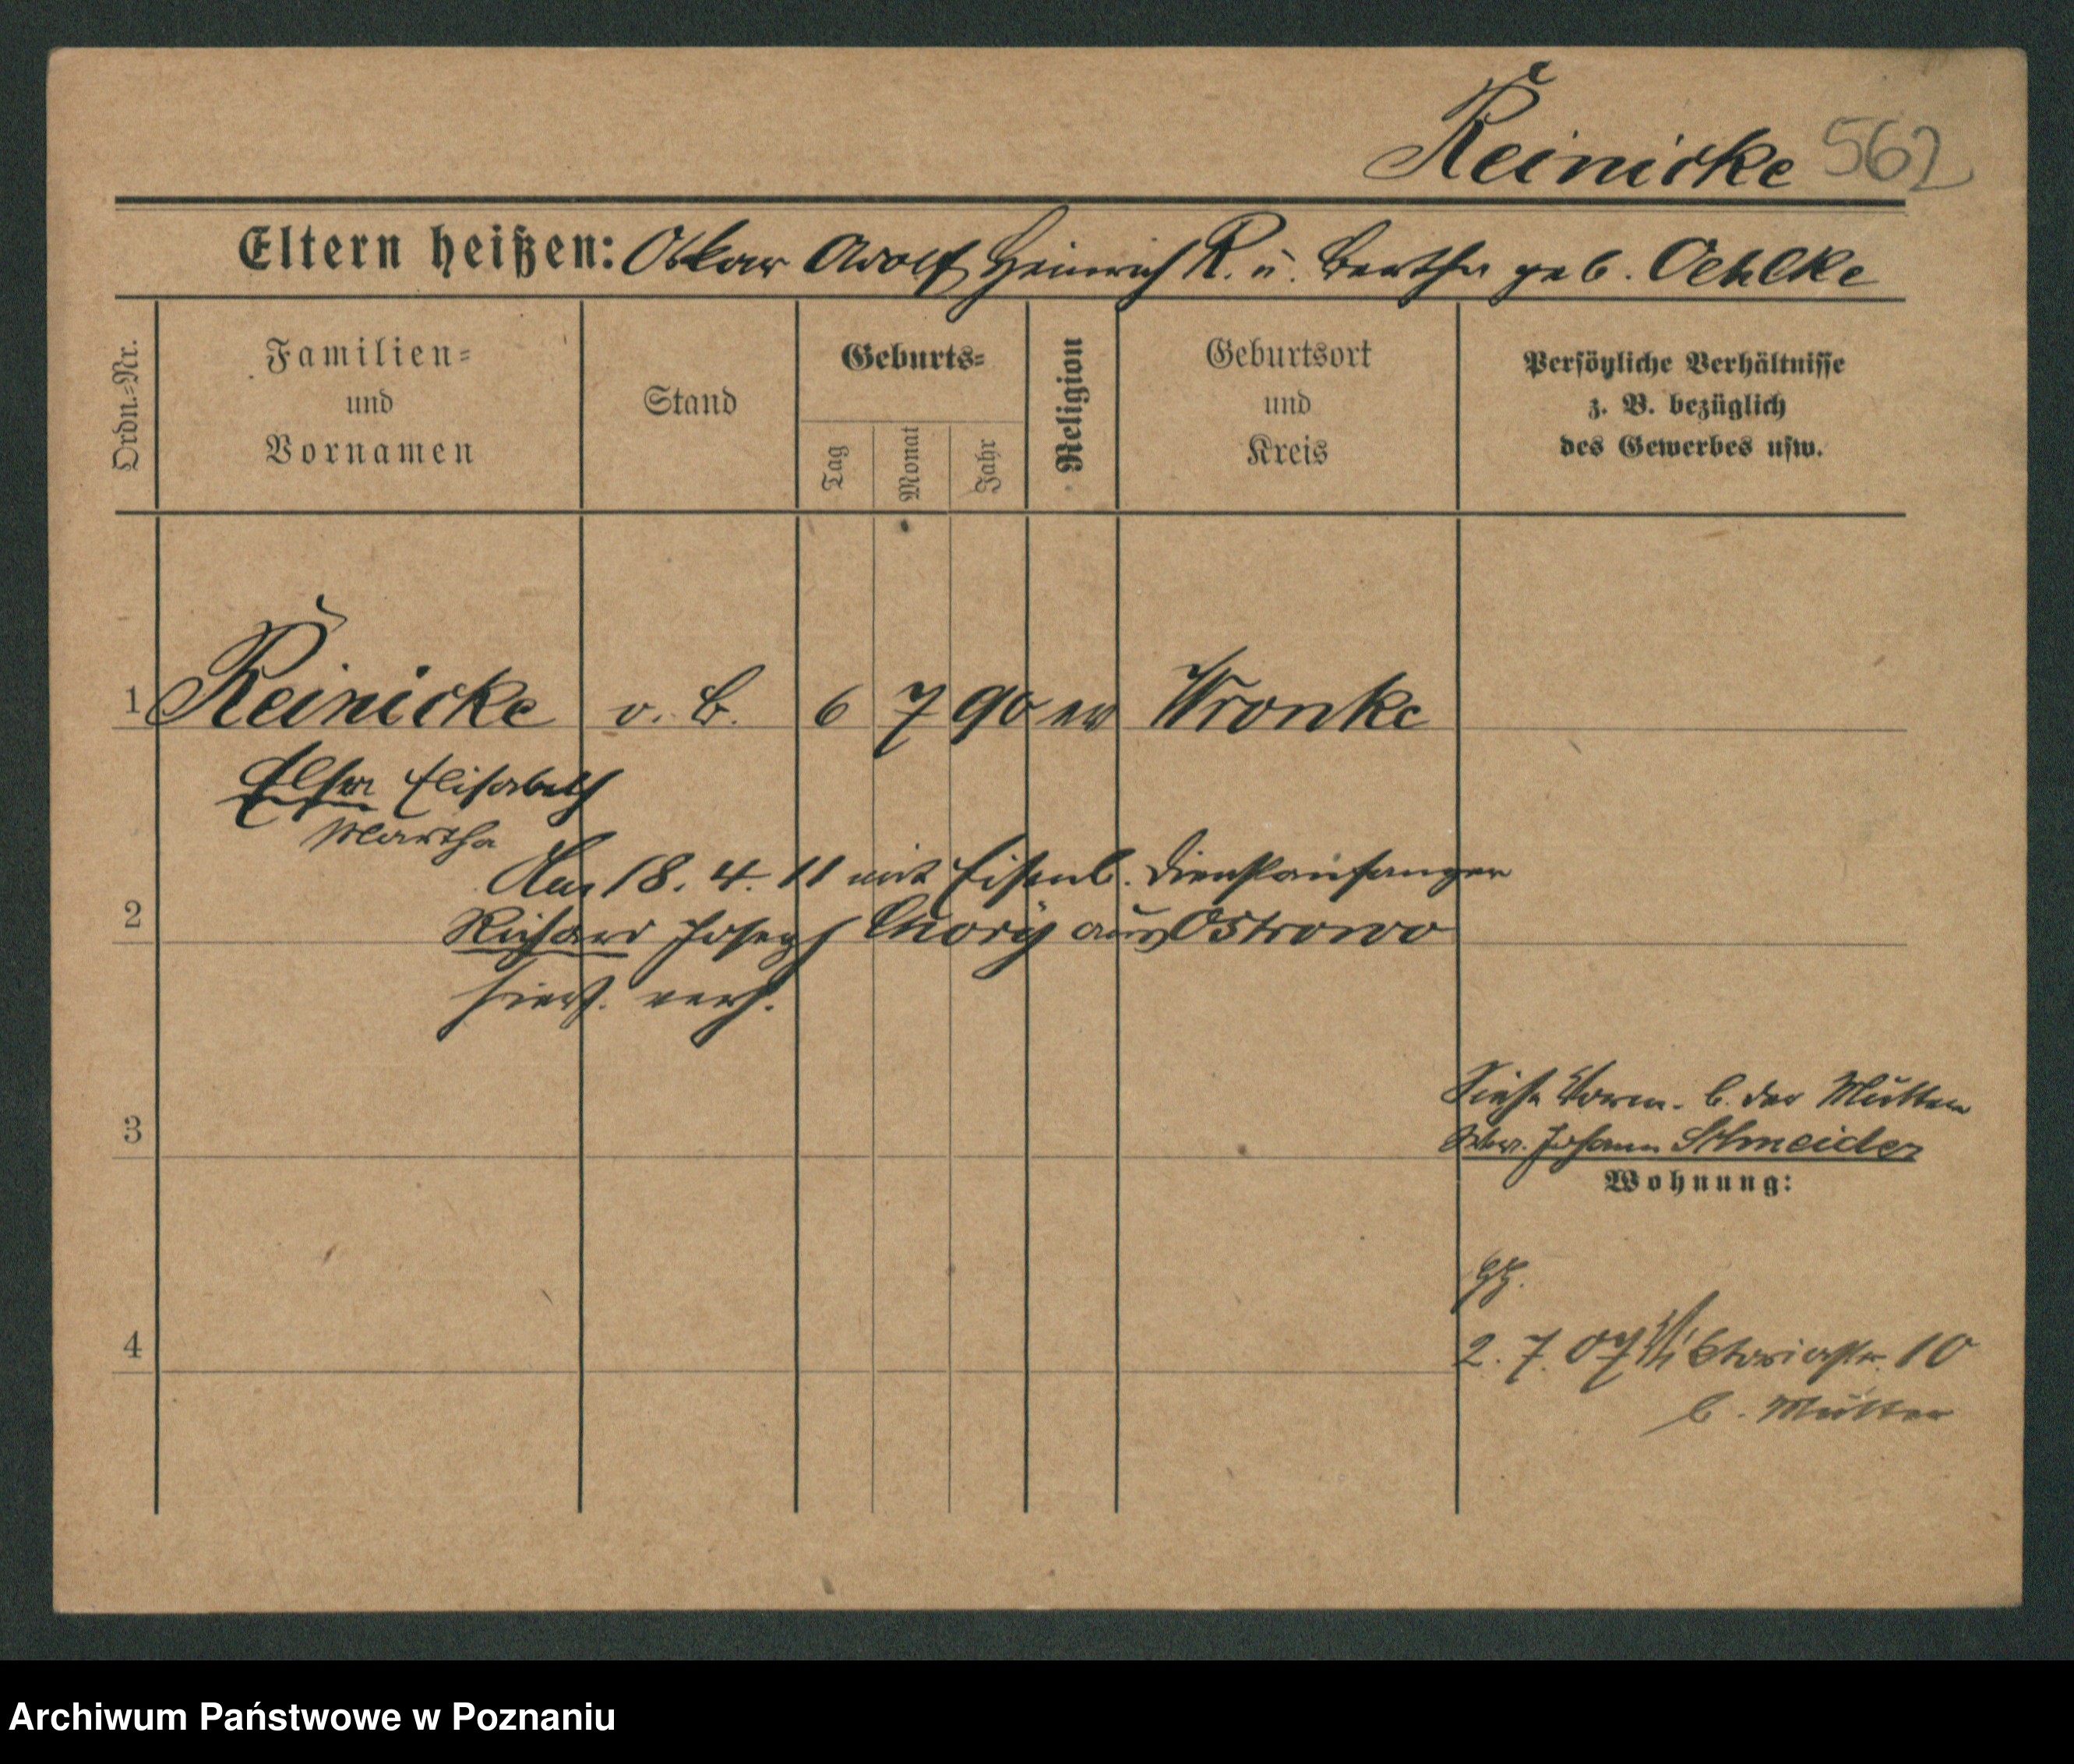 Reinicke 562
Eltern heißen: Oskar Adolf Heinrich R. u. Bertha geb. Oehlke
Ordn.=Nr.
Familien=
und
Vornamen
Stand
Geburts=
Tag
Monat
Jahr
Religion
Geburtsort
und
Kreis
Persönliche Verhältnisse
z. B. bezüglich
des Gewerbes usw.
1 Reinicke v. B. 6 7 90 ev Wronke
Elsa Elisabeth
Martha
Am 18. 4. 11 mit Eisenb. Dienstanfänger
2 Richard Joseph aus Ostrowo
hierf. verh.
Siehe Verm. b. der Mutter
3 Wwe. Johann Schneider
Wohnung:
4 2. 7. 07 Viktoriastr. 10
b. Mutter
Archiwum Państwowe w Poznaniu